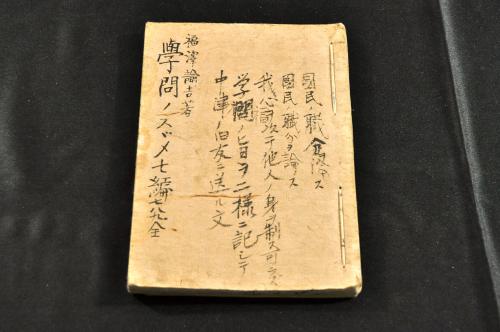 國民ノ職
國民ノ職分ヲ論ス
我心ヲ以テ他人ノ身ヲ制ス可ラズ
学問ノ旨ヲ二様ニ記シテ
中津ノ旧友ニ送ル文
福澤諭吉著
學問ノスヽメ七編八九全